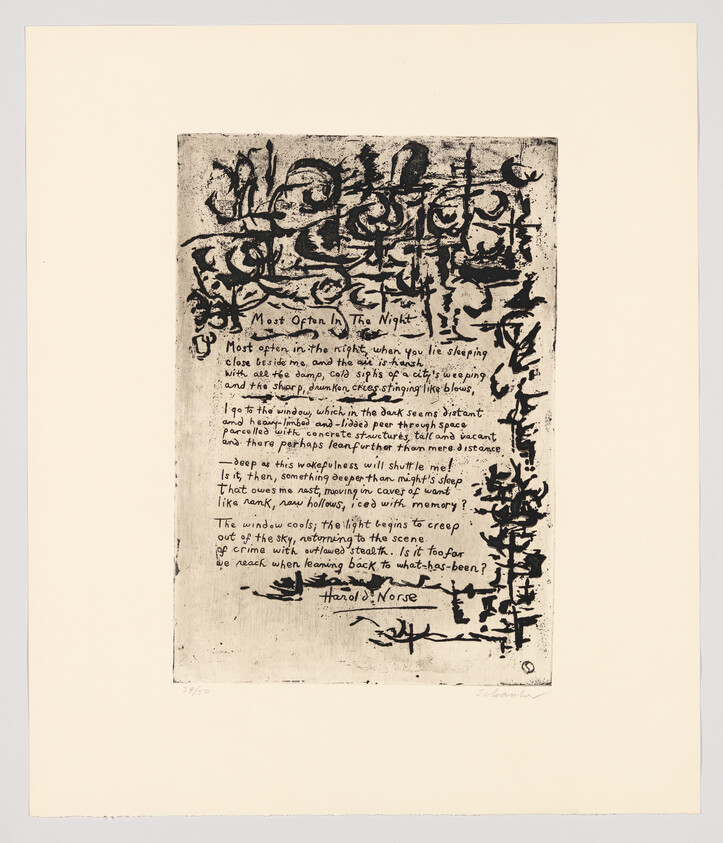 Most Often In The Night
Most often in the night, when you lie sleeping
close beside me, and the air is harsh
with all the damp, cold sighs of a city's weeping
and the sharp, drunken cries stinging like blows,
I go to the window, which in the dark seems distant
and heavy-limbed and -lidded peer through space
parcelled with concrete structures, tall and vacant
and there perhaps lean further than mere distance
—deep as this wakefulness will shuttle me!
Is it, then, something deeper than night's sleep
that owes me rest, moving in caves of want
like rank, raw hollows, iced with memory?
The window cools; the light begins to creep
out of the sky, returning to the scene
of crime with outlawed stealth. Is it too far
we reach when leaning back to what-has-been?
Harold Norse
/50